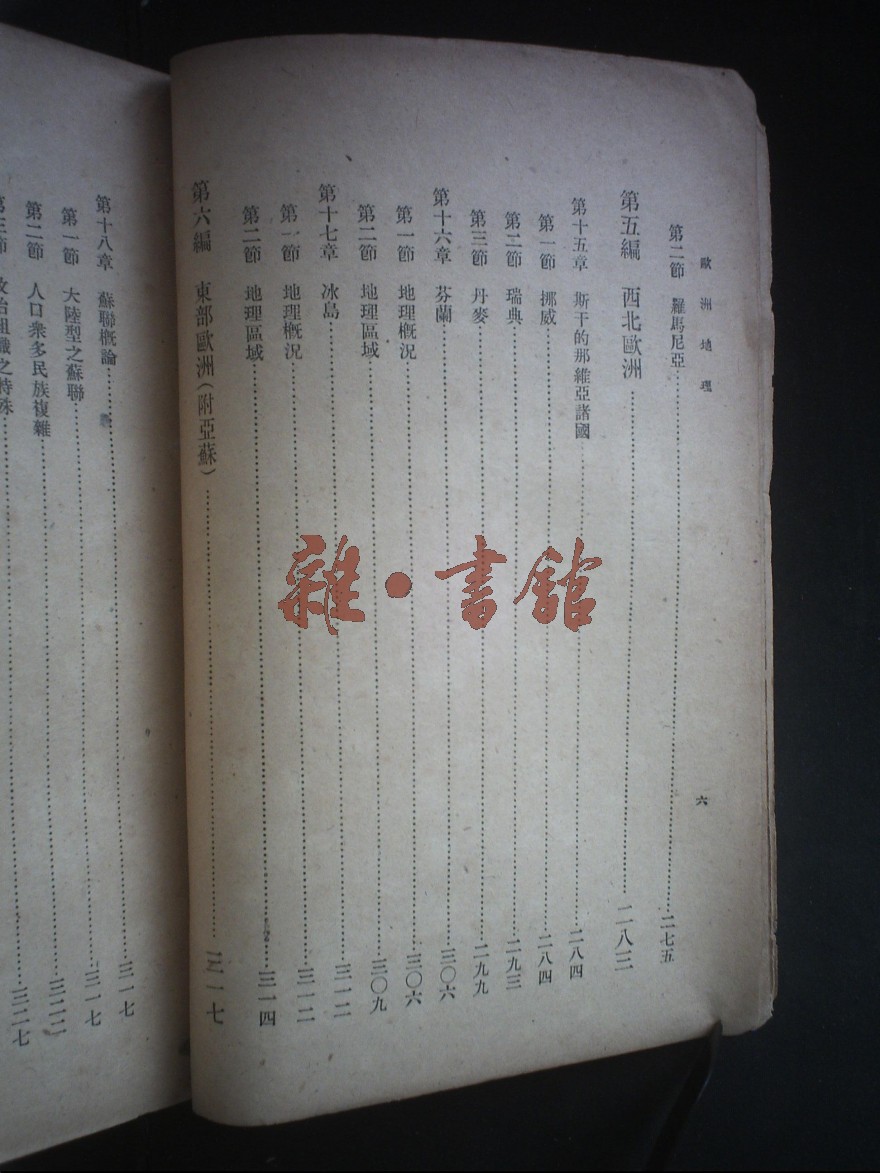 歐洲地理
六
第二節 羅馬尼亞 二七五
第五編 西北歐洲 二八三
第十五章 斯干的那維亞諸國 二八四
第一節 挪威 二八四
第二節 瑞典 二九三
第三節 丹麥 二九九
第十六章 芬蘭 三〇六
第一節 地理概況 三〇六
第二節 地理區域 三〇九
第十七章 冰島 三一二
第一節 地理概況 三一二
第二節 地理區域 三一四
第六編 東部歐洲（附亞蘇） 三一七
第十八章 蘇聯概論 三一七
第一節 大陸型之蘇聯 三一七
第二節 人口衆多民族複雜 三二二
第三節 政治組織之特殊 三二七
雜·書館